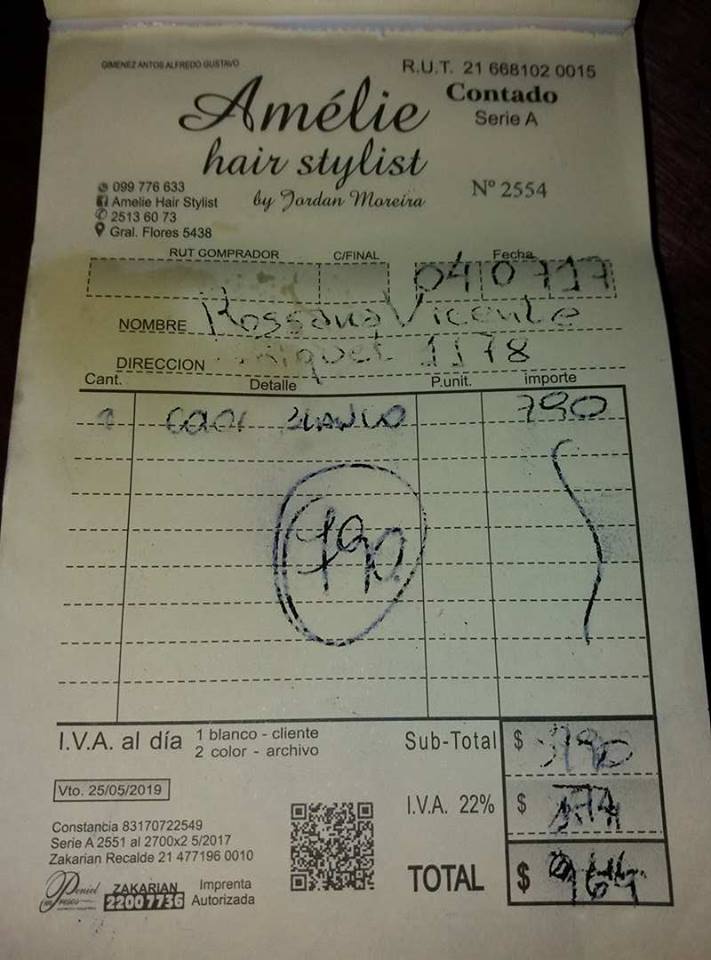 GIMENEZ ANTOS ALFREDO GUSTAVO
R.U.T. 21 668102 0015
Amélie
hair stylist
by Jordan Moreira
Contado
Serie A
Nº 2554
099 776 633
Amelie Hair Stylist
2513 60 73
Gral. Flores 5438
RUT COMPRADOR C/FINAL Fecha
04 07 17
NOMBRE Rossana Vicente
DIRECCION 1178
Cant. Detalle P.unit. importe
BLANCO 790
790
I.V.A. al día 1 blanco - cliente
2 color - archivo
Sub-Total $ 790
Vto. 25/05/2019
I.V.A. 22% $ 174
Constancia 83170722549
Serie A 2551 al 2700x2 5/2017
Zakarian Recalde 21 477196 0010
TOTAL $ 964
ZAKARIAN
22007736
Imprenta
Autorizada